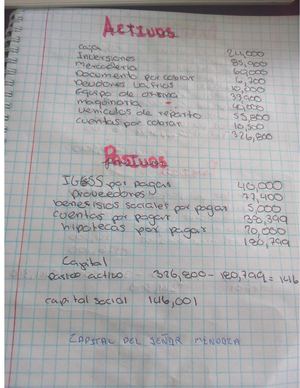 Activos
caja 24,000
Inversiones 85,900
mercaderia 69,000
Documento por cobrar 6,200
Deudores varios 10,000
Equipo de oficina
maquinaria
vehiculos de reparto 55,800
cuentas por cobrar 10,500
326,800
Pasivos
IGESS por pagar 40,000
proveedores 77,400
benesisios sociales por pagar 5,000
cuentas por pagar 38,399
hipotecas por pagar 20,000
180,799
Capital
activo 326,800 - 180,799 = 146
capital social 146,001
CAPITAL DEL SEÑOR MENDOZA